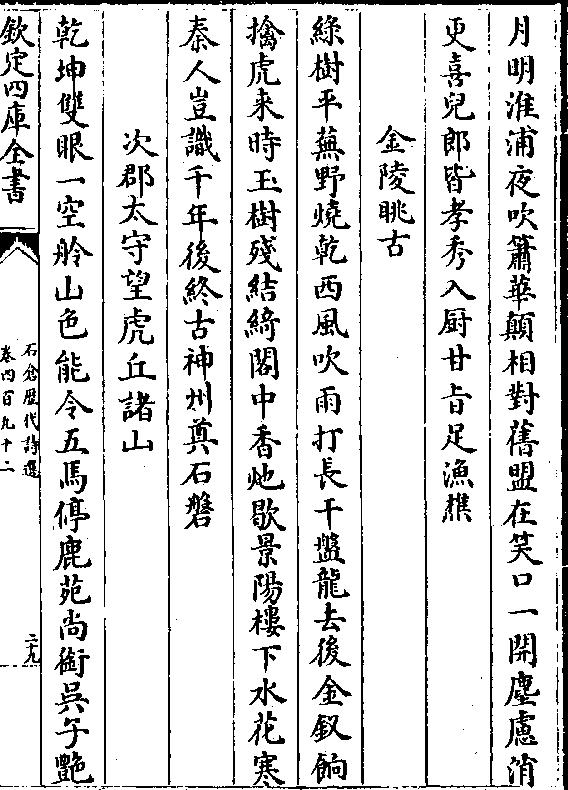 月明淮浦夜吹簫華顛相對舊盟在笑口一開塵慮消
更喜兒郎皆孝秀入厨甘旨足漁樵
金陵眺古
綠樹平蕪野燒乾西風吹雨打長干盤龍去後金釵餉
擒虎来時玉樹殘結綺閣中香灺歇景陽樓下水花寒
秦人豈識千年後終古神州奠石磐
次郡太守望虎丘諸山
乾坤雙眼一空舲山色能令五馬停鹿苑尚銜吳午艷
欽定四庫全書
石倉歴代詩選
卷四百九十二
二十九